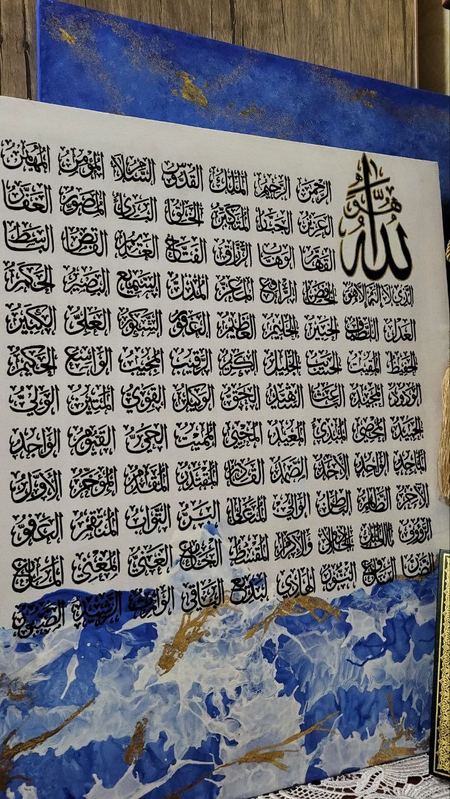 هو الله
الرحمن الرحيم الملك القدوس السلام المؤمن المهيمن
العزيز الجبار المتكبر الخالق البارئ المصور الغفار
القهار الوهاب الرزاق الفتاح العليم القابض الباسط
الذي لا إله إلا هو الخافض الرافع المعز المذل السميع البصير الحكم
العدل اللطيف الخبير الحليم العظيم الغفور الشكور العلي الكبير
الحفيظ المقيت الحسيب الجليل الكريم الرقيب المجيب الواسع الحكيم
الودود المجيد الباعث الشهيد الحق الوكيل القوي المتين الولي
الحميد المحصي المبدئ المعيد المحيي المميت الحي القيوم الواجد
الماجد الواحد الأحد الصمد القادر المقتدر المقدم المؤخر الأول
الآخر الظاهر الباطن الوالي المتعالي البر التواب المنتقم العفو
الرؤوف مالك الملك ذو الجلال والإكرام المقسط الجامع الغني المغني المانع
الضار النافع النور الهادي البديع الباقي الوارث الرشيد الصبور